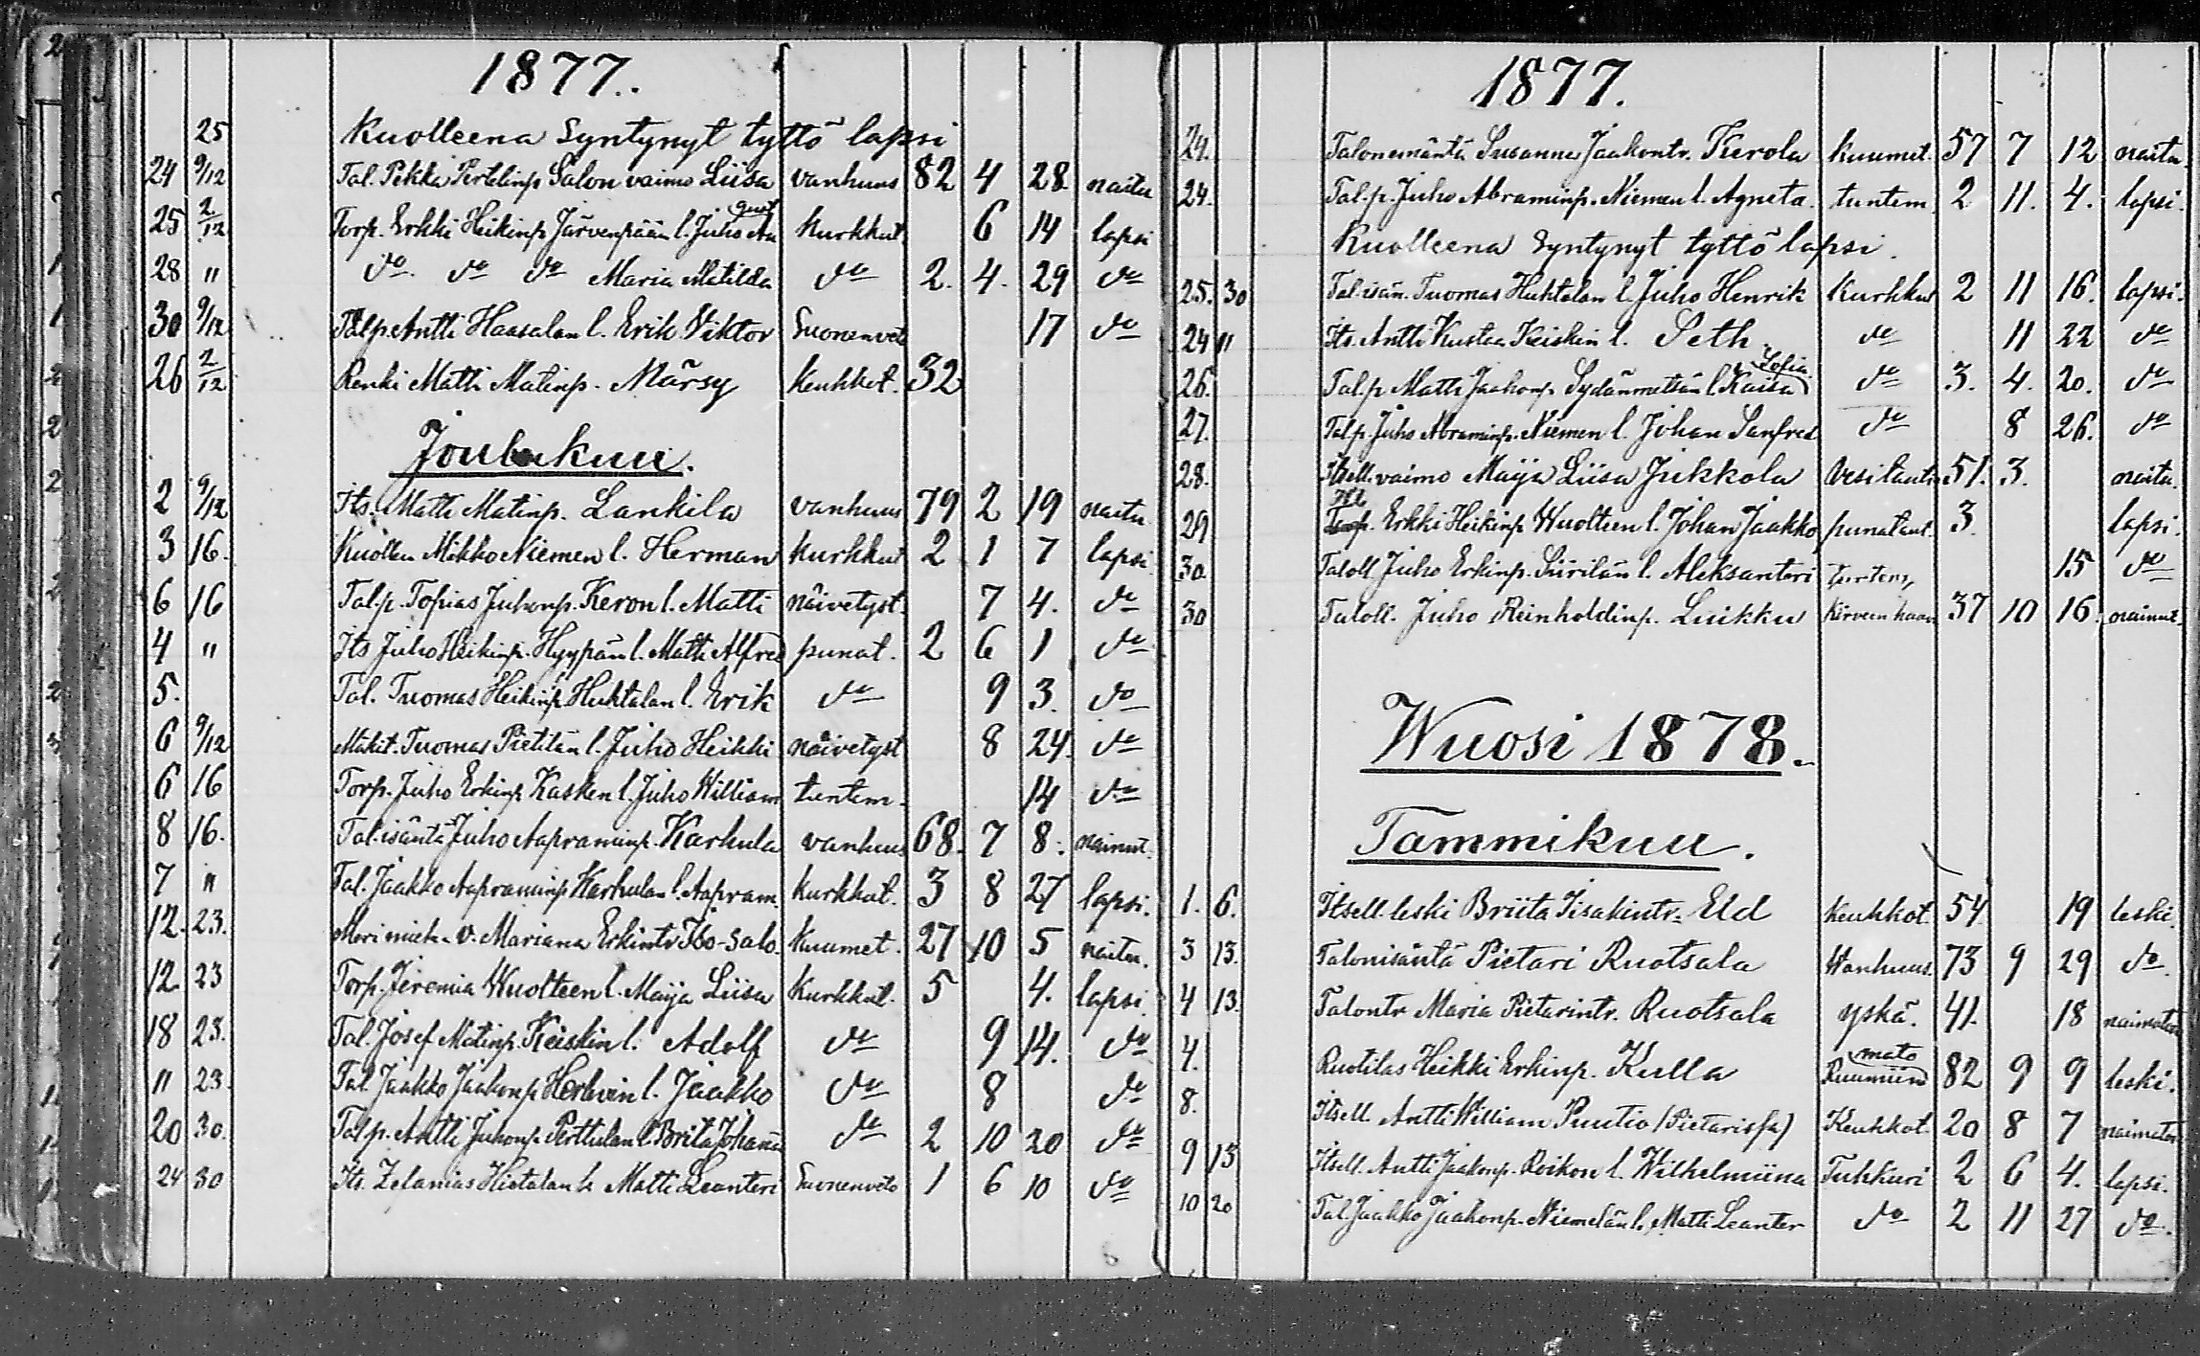 1877.
25 Kuolleena Syntynyt tyttö lapsi
24 9/12 Tal. Pekka Pertelinp Salon vaimo Liisa vanhuus 82 4 28 naitu
25 2/12 Torp. Erkki Heikinp Järvenpään l. Juho Au gust Kurkkut 6 14 lapsi
28 " do do do Maria Matilda do 2. 4. 29 do
30 9/12 Talp. Antti Haasalan l. Erik Viktor Suonenvet 17 do
26 2/12 Renki Matti Matinp. Märsy Keuhkot. 32
Joulukuu.
2 9/12 Its. Matti Matinp. Lankila vanhuus 79 2 19 naitu
3 16. Mikko Niemen l. Herman Kurkkut 2 1 7 lapsi
6 16 Talp. Topias Juhonp. Keron l. Matti näivetyst. 7 4. do
4 " Its Juho Heikinp. Hyypän l. Matti Alfred punat. 2 6 1 do
5. Tal. Tuomas Heikinp Huhtalan l. Erik do 9 3. do
6 9/12 Mäkit. Tuomas Pietilän l. Juho Heikki näivetyst 8 24. do
6 16 Torp. Juho Erkinp Kasken l. Juho William tuntem. 14 do
8 16. Tal. isäntä Juho Aapraminp. Karhula vanhuus 68. 7 8. nainut.
7 " Tal. Jaakko Aapraminp Karhulan l. Aapram. Kurkkut. 3 8 27 lapsi.
12. 23. Merimieh. v. Mariana Erkintr Iso-Salo. Kuumet. 27 10 5 naitu.
12. 23 Torp. Jeremia Wuolteen l. Maija Liisa Kurkkut. 5 4. lapsi
18 23. Tal. Josef Matinp. Keiskin l. Adolf do 9 14. do
11 23. Tal. Jaakko Jaakonp Herlevin l. Jaakko do 8 do
20 30. Talp. Antti Juhonp. Perttulan l. Brita Johanna do 2 10 20 do
24 30 Its. Hietalan l. Matti Leanteri Suonenveto 1 6 10 do
1877.
24. Talonemäntä Susanna Jaakontr. Kerola Kuumet. 57 7 12 naitu.
24. Tal. p. Juho Abraminp. Niemen l. Agneta. tuntem. 2 11. 4. lapsi.
Kuolleena Syntynyt tyttö lapsi.
25. 30 Tal. isän. Tuomas Huhtalan l. Juho Henrik Kurkkut 2 11 16. lapsi.
24 " Its. Antti Kustaa Keiskin l. Seth do 11 22 do
26. Tal. p Matti Jaakonp. Sydänmetsän l. Kaisa Sofia do 3. 4. 20. do
27. Talp. Juho Abraminp. Niemen l. Johan Sanfred do 8 26. do
28. Itsell. vaimo Maija Liisa Jukkola Vesitauti 51. 3. naitu.
29 Erkki Heikinp Wuolteen l. Johan Jaakko punataut. 3. lapsi.
30. Taloll. Juho Erkinp. Siirilän l. Aleksanteri tuntem. 15 do
30 Taloll. Juho Reinholdinp. Luikku Kirveen haav. 37 10 16 nainut.
Wuosi 1878.
Tammikuu.
1. 6. Itsell. leski Briita Iisakintr. Eld Keuhkot. 54 19 leski.
3 13. Talonisäntä Pietari Ruotsala Wanhuus. 73 9 29 do
4 13. Talontr Maria Pietarintr. Ruotsala yskä. 41. 18 naimaton
4. Ruotilas Heikki Erkinp. Kulla Ruumiin mato 82 9 9 leski.
8. Itsell. Antti William Puutio (Pietarisfa) Keuhkot. 20 8 7 naimaton
9 13 Itsell. Antti Jaakonp. Roikon l. Wilhelmiina Tuhkuri 2 6 4. lapsi.
10 20 Tal. Jaakko Jaakonp. Niemelän l. Matti Leanter do 2 11 27 do.